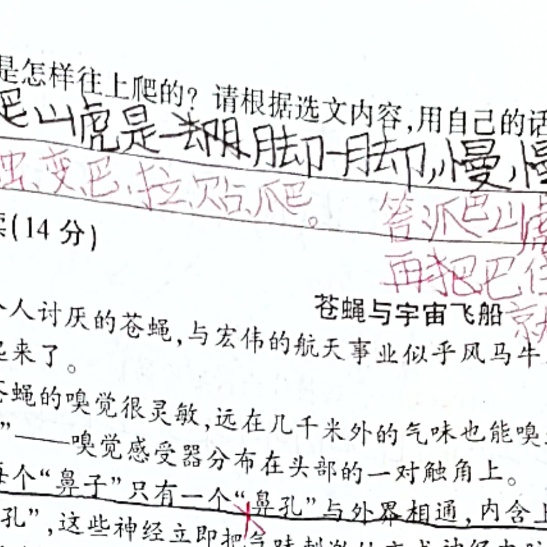 是怎样往上爬的？请根据选文内容,用自己的话
爬山虎是一脚一脚,慢,慢
虫、变、巴、拉、贴、爬。
答:爬山虎
再把巴住
(14分)
苍蝇与宇宙飞船
人讨厌的苍蝇,与宏伟的航天事业似乎风马牛
起来了。
苍蝇的嗅觉很灵敏,远在几千米外的气味也能嗅
”——嗅觉感受器分布在头部的一对触角上。
每个“鼻子”只有一个“鼻孔”与外界相通,内含上
孔”,这些神经立即把气味刺激